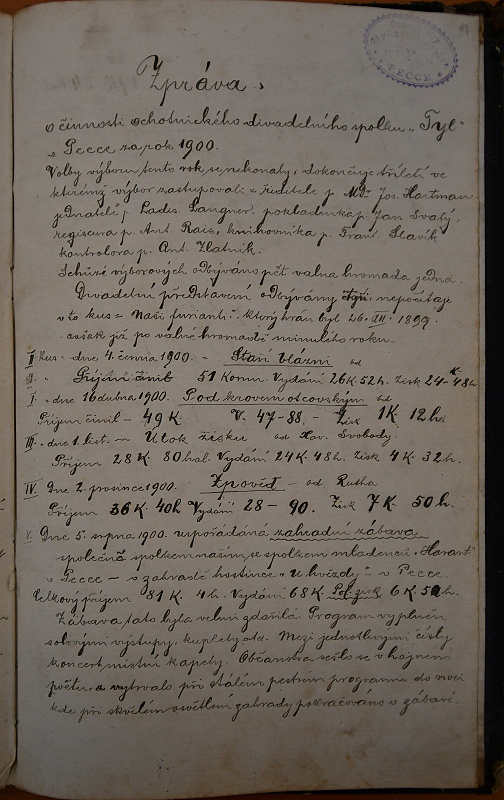 Zpráva.
o činnosti ochotnického divadelního spolku „Tyl"
v Pecce za rok 1900.
Volby výboru tento rok se nekonaly, dokončuje tříletí ve
kterémž výbor zastupovali: ředitele p. MDr. Jos. Hartman
jednatelé p. Ladis. Langner, pokladníka p. Jan Svatý,
regiseura p. Ant. Rais, knihovníka p. Frant. Slavík
kontrolora p. Ant. Zlatník.
Schůzí výborových odbýváno pět valna hromada jedna.
Divadelní představení odbývány, nepočítaje
v to kus „Naši furianti" který hrán byl 26. XII. 1899.
avšak již po valné hromadě minulého roku.
II Kus - dne 4. června 1900. - Staří blázni od
Příjem činil 51 Korun. Vydání 26 K. 52 h. Zisk 24 K 48 h
I. - dne 16 dubna 1900. Pod krovem otcovským od
Příjem činil - 49 K V. 47-88. - Zisk 1 K 12 h.
III. - dne 1. list. - Útok zisku od Xav. Svobody
Příjem 28 K. 80 hal. Vydání 24 K. 48 h. Zisk 4 K. 32 h.
IV. Dne 2. prosince 1900. Zpověď - od Rutha
Příjem 36 K. 40 h Vydání 28 - 90. Zisk 7 K. 50 h.
V. Dne 5. srpna 1900. uspořádána zahradní zábava
společně spolkem naším, se spolkem mládenců „Harant"
v Pecce - v zahradě hostince „U hvězdy" - v Pecce.
Celkový příjem 81 K. 4 h. Vydání 68 K. 6 K. 50 h.
Zábava tato byla velmi zdařilá. Program vyplněn
solovými výstupy, kuplety atd. Mezi jednotlivými čísly
koncert místní kapely. Občanstva sešlo se v hojném
počtu a vytrvalo při stálém pestrém programu do noci
kde při skvělém osvětlení zahrady pokračováno v zábavě.
PECCE